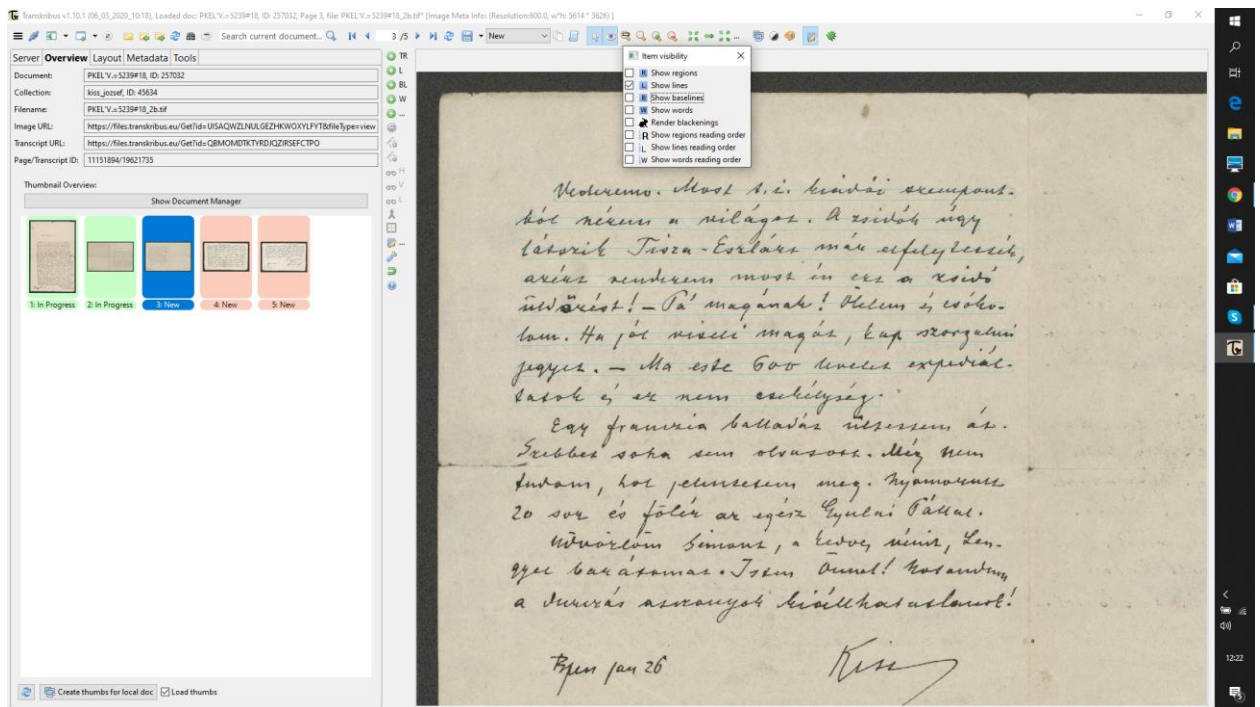 Transkribus v1.10.1 (06_03_2020_10:18), Loaded doc: PKEL'V.=5239#18, ID: 257032, Page 3, file: PKEL'V.=5239#18_2b.tif* [Image Meta Info: (Resolution:600.0, w*h: 5614 * 3626) ]
Search current document...
3 /5
New
Server Overview Layout Metadata Tools
Document: PKEL'V.=5239#18, ID: 257032
Collection: kiss_jozsef, ID: 45634
Filename: PKEL'V.=5239#18_2b.tif
Image URL: https://files.transkribus.eu/Get?id=UISAQWZLNULGEZHKWOXYLFYT&fileType=view
Transcript URL: https://files.transkribus.eu/Get?id=QBMOMDTKTYRDJQZIRSEFCTPO
Page/Transcript ID: 11151894/19621735
Thumbnail Overview:
Show Document Manager
1: In Progress
2: In Progress
3: New
4: New
5: New
Create thumbs for local doc
Load thumbs
TR
L
BL
W
...
H
V
L
...
Item visibility
R Show regions
L Show lines
B Show baselines
W Show words
Render blackenings
R Show regions reading order
L Show lines reading order
W Show words reading order
Vederemo. Most t.i. kiadói szempont-
ból nézem a világot. A zsidók úgy
látszik Tisza-Eszlárt már elfelejtették,
azért rendezem most én ezt a zsidó
üldözést! – Pá magának! Ölelem és csóko-
lom. Ha jól viseli magát, kap szorgalmi
jegyet. – Ma este 600 levelet expediál-
tatok és ez nem csekélység.
Egy franczia balladát ültettem át.
Szebbet soha sem olvasott. Még nem
tudom, hol jelentetem meg. Nyomorult
20 sor és fölér az egész Gyulai Pállal.
Üdvözlöm Simont, a kedves nénit, Len-
gyel barátomat. Isten Önnel!
a asszonyok kiállhatatlanok!
Bpen jan 26
Kiss
12:22